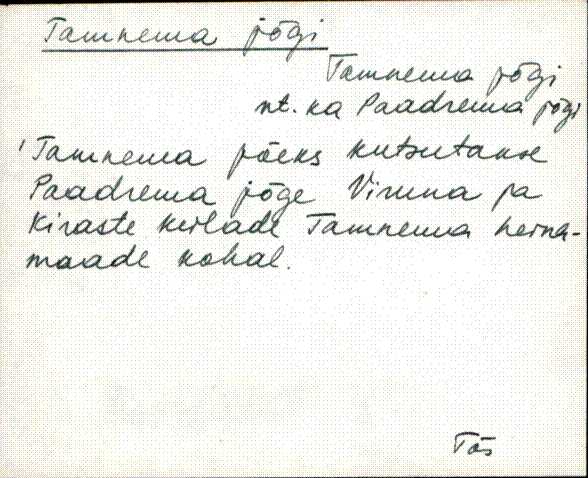 Tamnema jõgi
Tamnema jõgi
nt. ka Paadrema jõgi
'Tamnema jõeks kutsutakse
Paadrema jõge Viruna ja
Kiraste külade Tamnema heina-
maade kohal.
Tõs